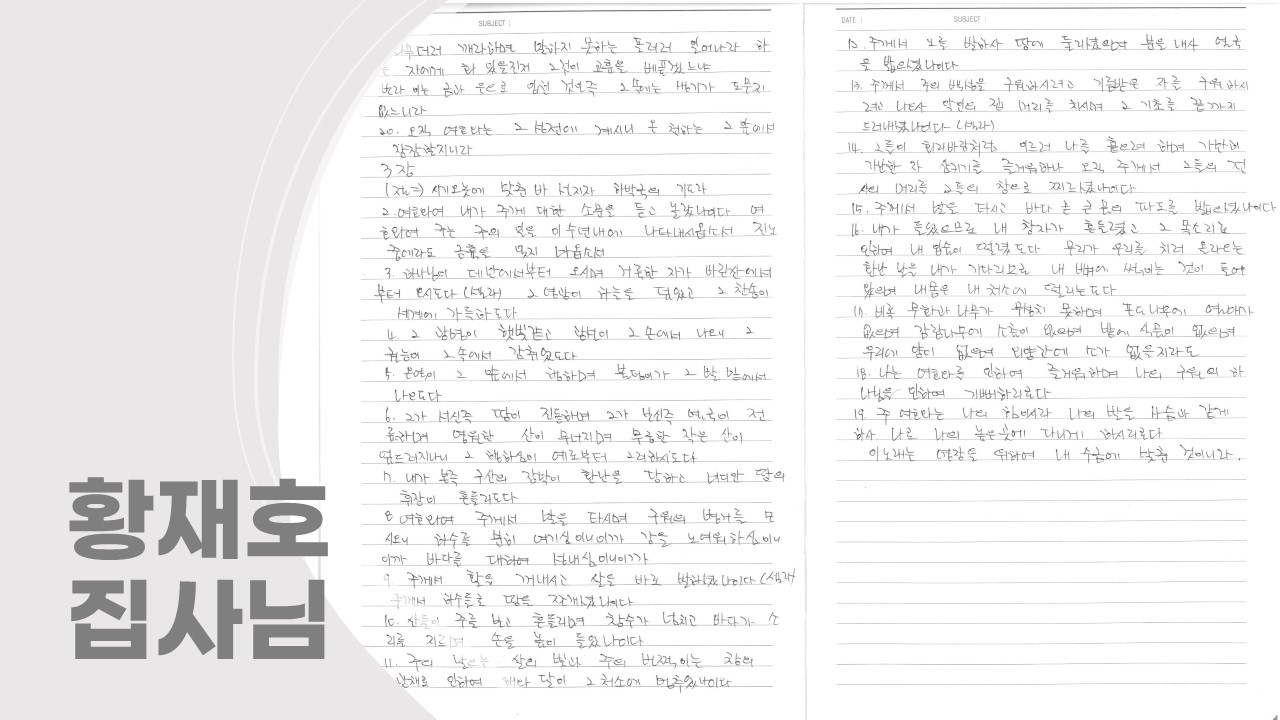 SUBJECT |
더러 깨라하며 말하지 못하는 돌더러 일어나라 하
는 자에게 화 있을진저 그것이 교훈을 베풀겠느냐
보라 이는 금과 은으로 입힌 것인즉 그 속에는 생기가 도무지
없느니라
20. 오직 여호와는 그 성전에 계시니 온 천하는 그 앞에서
잠잠할지니라
3장
시기오놋에 맞춘 바 선지자 하박국의 기도라
2. 여호와여 내가 주께 대한 소문을 듣고 놀랐나이다 여
호와여 주는 주의 일을 이 수년내에 나타내시옵소서 진노
중에라도 긍휼을 잊지 마옵소서
3. 하나님이 데만에서부터 오시며 거룩한 자가 바란산에서
부터 오시도다 (셀라) 그 영광이 하늘을 덮었고 그 찬송이
세계에 가득하도다
4. 그 광명이 햇빛같고 광선이 그 손에서 나오니 그
권능이 그 속에서 감취었도다
5. 온역이 그 앞에서 행하며 불덩이가 그 발 밑에서
나오도다
6. 그가 서신즉 땅이 진동하며 그가 보신즉 열국이 전
율하며 영원한 산이 무너지며 무궁한 작은 산이
엎드러지나니 그 행하심이 예로부터 그러하시도다
7. 내가 본즉 구산의 장막이 환난을 당하고 미디안 땅의
휘장이 흔들리도다
8 여호와여 주께서 말을 타시며 구원의 병거를 모
시오니 하수를 분히 여기심이니이까 강을 노여워하심이니
이까 바다를 대하여 성내심이니이까
9. 주께서 활을 꺼내시고 살을 바로 발하셨나이다 (셀라)
주께서 하수들로 땅을 쪼개셨나이다
10. 산들이 주를 보고 흔들리며 창수가 넘치고 바다가 소
리를 지르며 손을 높이 들었나이다
11. 주의 날으는 살의 빛과 주의 번쩍이는 창의
광채로 인하여 해와 달이 그 처소에 멈추었나이다
DATE | SUBJECT |
12. 주께서 노를 발하사 땅에 둘리셨으며 분을 내사 열국
을 밟으셨나이다
13. 주께서 주의 백성을 구원하시려고 기름받은 자를 구원하시
려고 나오사 악인의 집 머리를 치시며 그 기초를 끝까지
드러내셨나이다 (셀라)
14. 그들이 회리바람처럼 이르러 나를 흩으려 하며 가만히
가난한 자 삼키기를 즐거워하나 오직 주께서 그들의 전
사의 머리를 그들의 창으로 찌르셨나이다
15. 주께서 말을 타시고 바다 곧 큰 물의 파도를 밟으셨나이다
16. 내가 들었으므로 내 창자가 흔들렸고 그 목소리로
인하여 내 입술이 떨렸도다 무리가 우리를 치러 올라오는
환난 날을 내가 기다리므로 내 뼈에 썩이는 것이 들어
왔으며 내 몸은 내 처소에 떨리는도다
17. 비록 무화과나무가 무성치 못하며 포도나무에 열매가
없으며 감람나무에 소출이 없으며 밭에 식물이 없으며
우리에 양이 없으며 외양간에 소가 없을지라도
18. 나는 여호와를 인하여 즐거워하며 나의 구원의 하
나님을 인하여 기뻐하리로다
19. 주 여호와는 나의 힘이시라 나의 발을 사슴과 같게
하사 나로 나의 높은곳에 다니게 하시리로다
이 노래는 영장을 위하여 내 수금에 맞춘 것이니라.
황재호
집사님